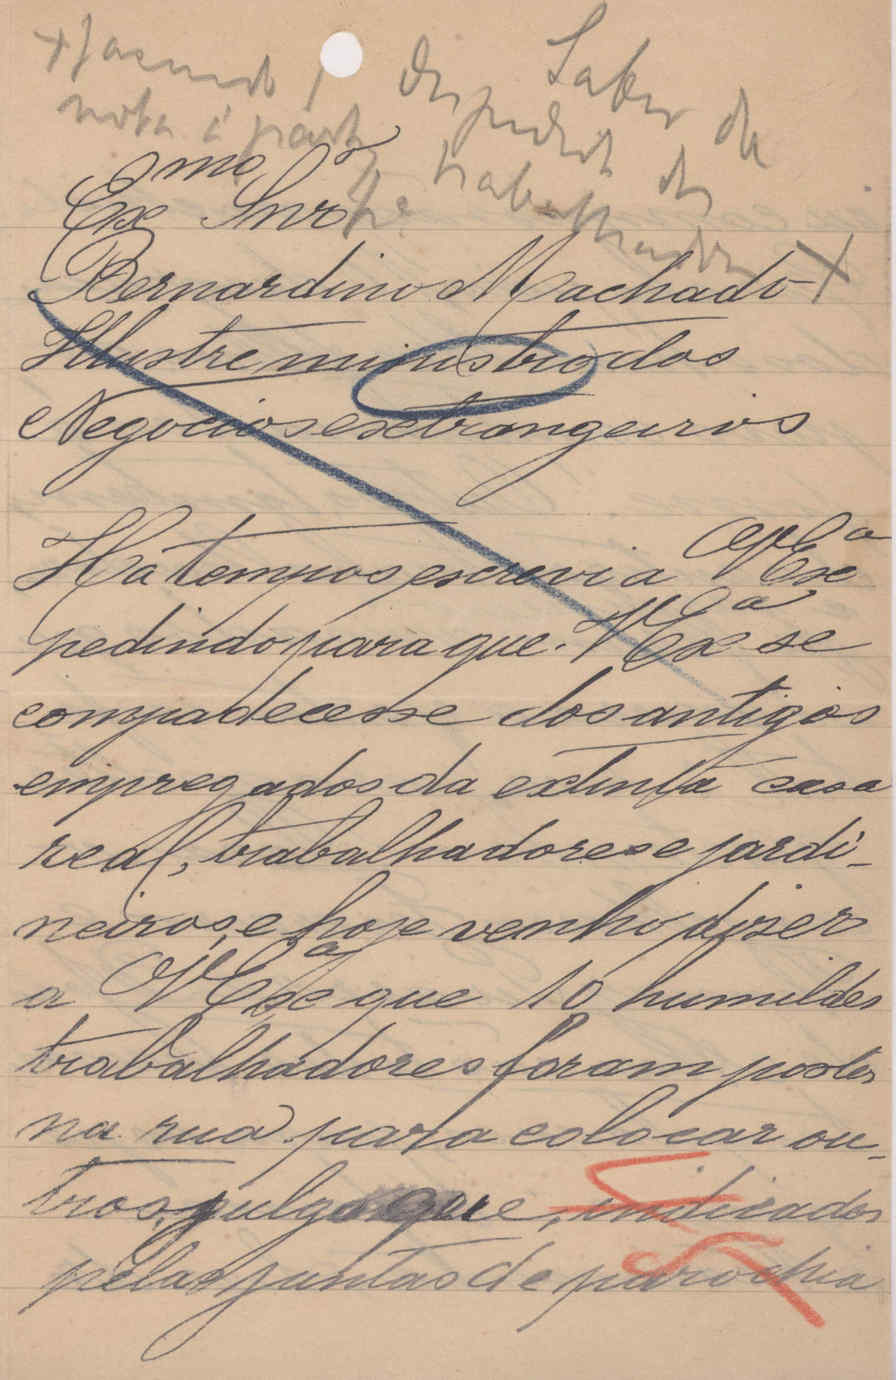 Saber da
despedida dos
trabalhadores
nota á parte
Exmo Snr.
Bernardino Machado
Illustre ministro dos
Negocios extrangeiros
Ha tempos escrevi a V Exª
pedindo para que V Exª se
compadecesse dos antigos
empregados da extinta casa
real, trabalhadores e jardi-
neiros, e hoje venho dizer
a V Exª que 10 humildes
trabalhadores foram postos
na rua para colocar ou-
tros, julgo que, indicados
pelas juntas de parochia